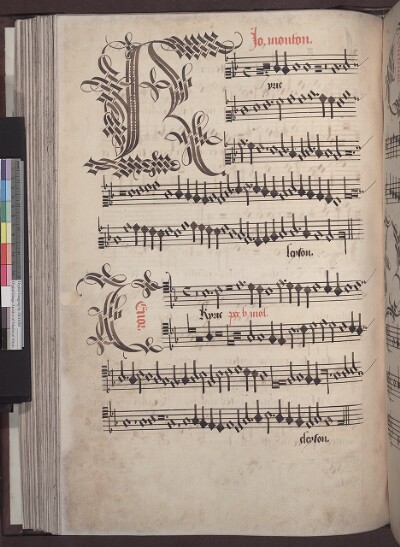 Jo. mouton.
K yrie
leyson.
T Enor.
Kyrie per b mol.
eleyson.